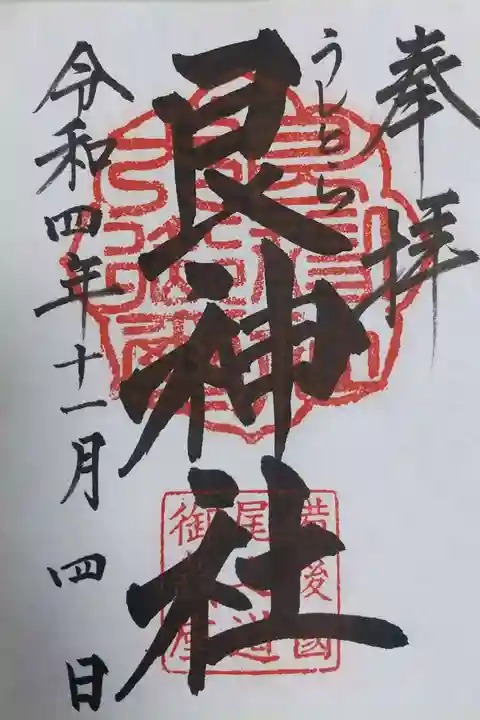 奉拝
うしとら
艮神社
令和四年十一月四日
備後國
尾道
御